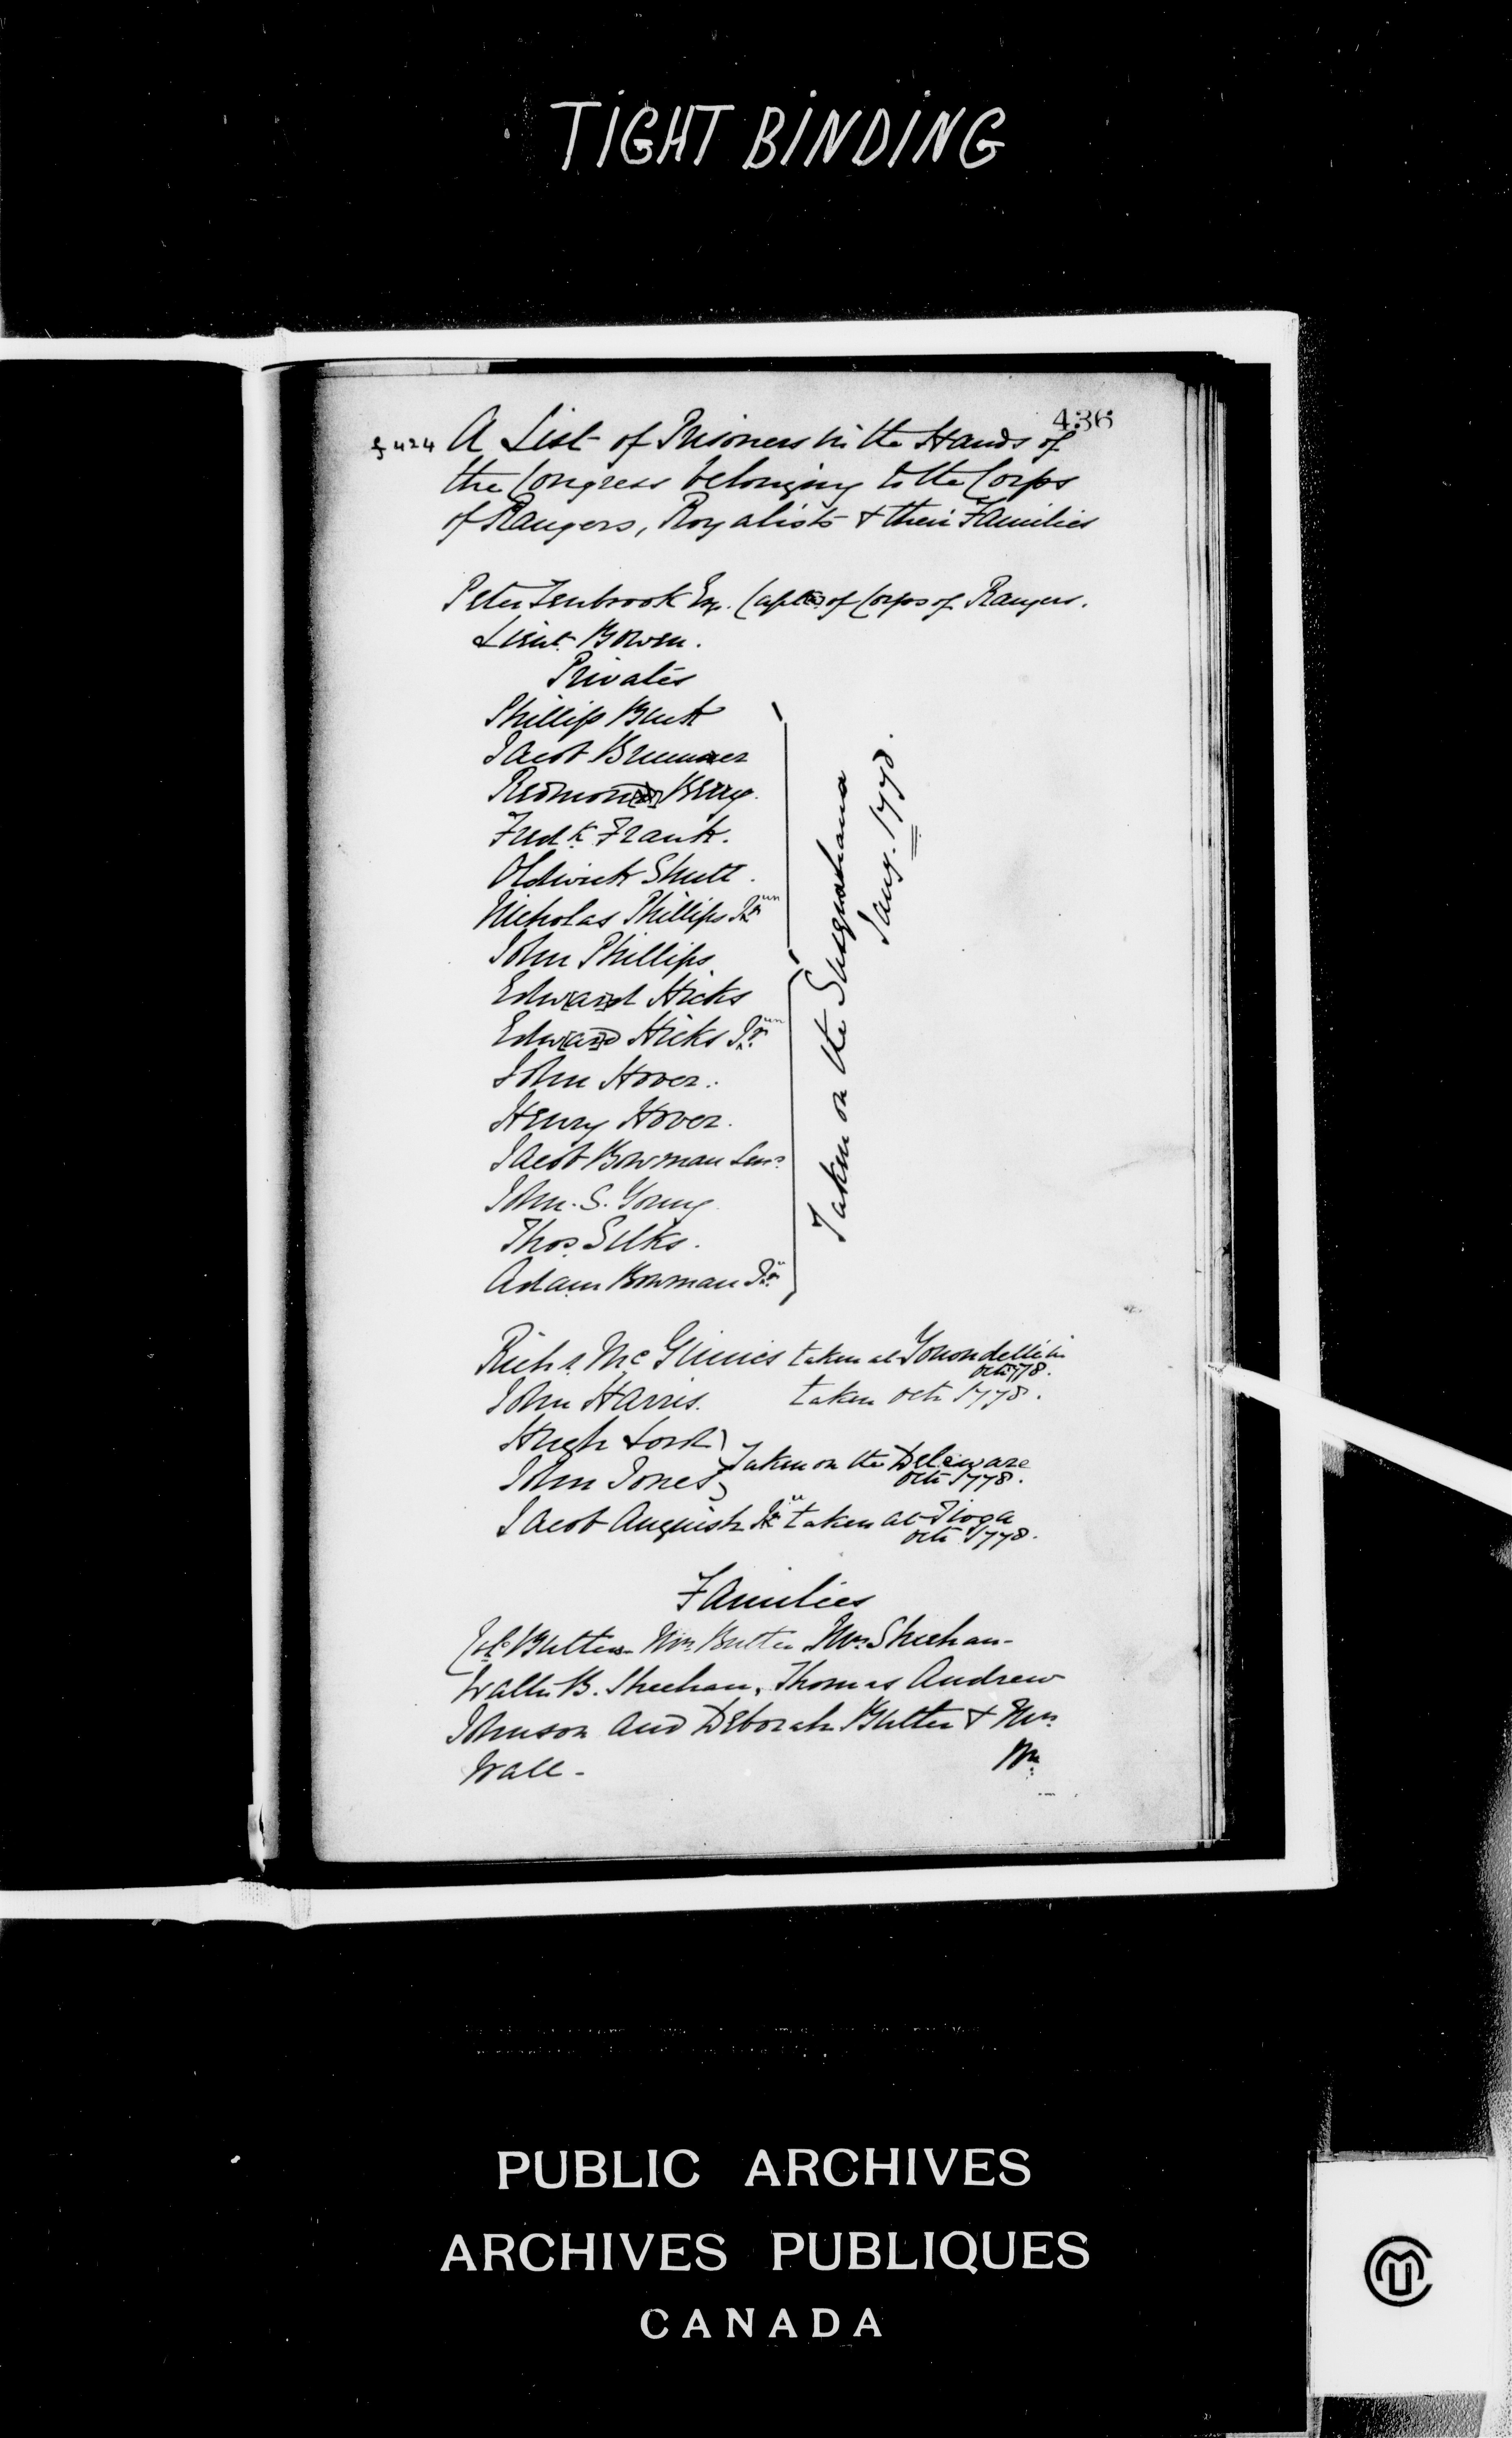 TIGHT BINDING
436
f 424 A List of Prisoners in the Hands of
the Congress belonging to the Corps
of Rangers, Royalists & their Families
Peter Tenbrook Esq. Capt[n] of Corps of Rangers.
Lieut. Bowen.
Privates
Phillip Buck
Jacob Brunner
Redmon[d] Berry.
Fred k Frank.
Oldwick Shutt.
Nicholas Phillips Jun r
John Phillips
Edw[ar]d Hicks
Edw[ar]d Hicks Jun r.
John Hover.
Henry Hover.
Jacob Bowman Sen r
John. S. Young
Thos. Silks.
Adam Bowman Ju r
Taken on the Susquahana
Jany. 1778.
Rich d. Mc Ginnis taken at
Oct 1778.
John Harris. taken Oct 1778.
Hugh Lord
John Jones } Taken on the Deleware
Oct 1778.
Jacob Anguish Ju r taken at Tioga
Oct 1778.
Families
Col. Butlers - Mrs Butler Mrs Sheehan -
Walter B. Sheehan, Thomas Andrew
Johnson and Deborah Butler & Mrs
Wall -
PUBLIC ARCHIVES
ARCHIVES PUBLIQUES
CANADA